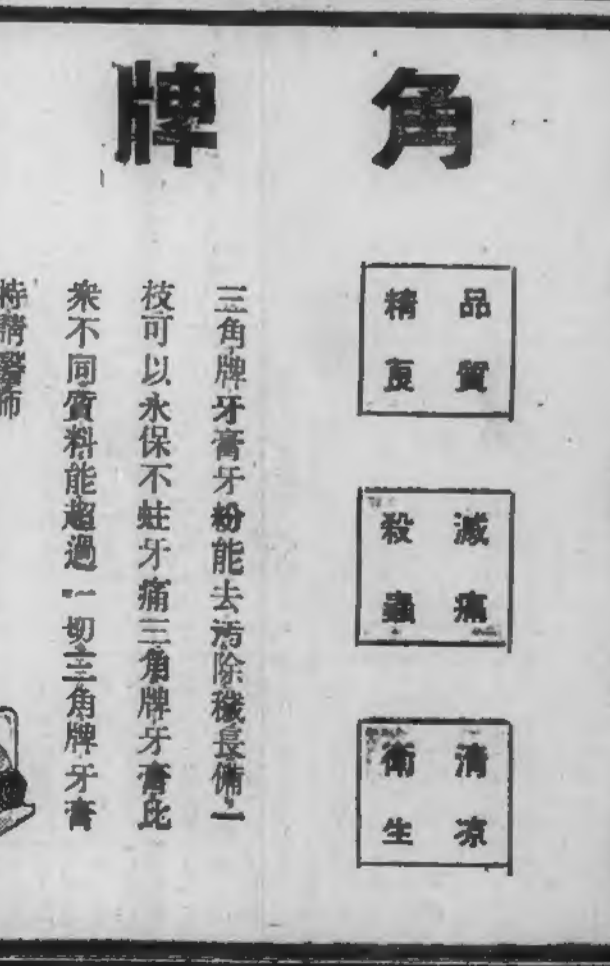 角牌
品質
精良
滅痛
殺蟲
清凉
衛生
三角牌牙膏牙粉能去污除穢長備一
枝可以永保不蛀牙痛三角牌牙膏比
衆不同質料能超過一切三角牌牙膏
特請醫師